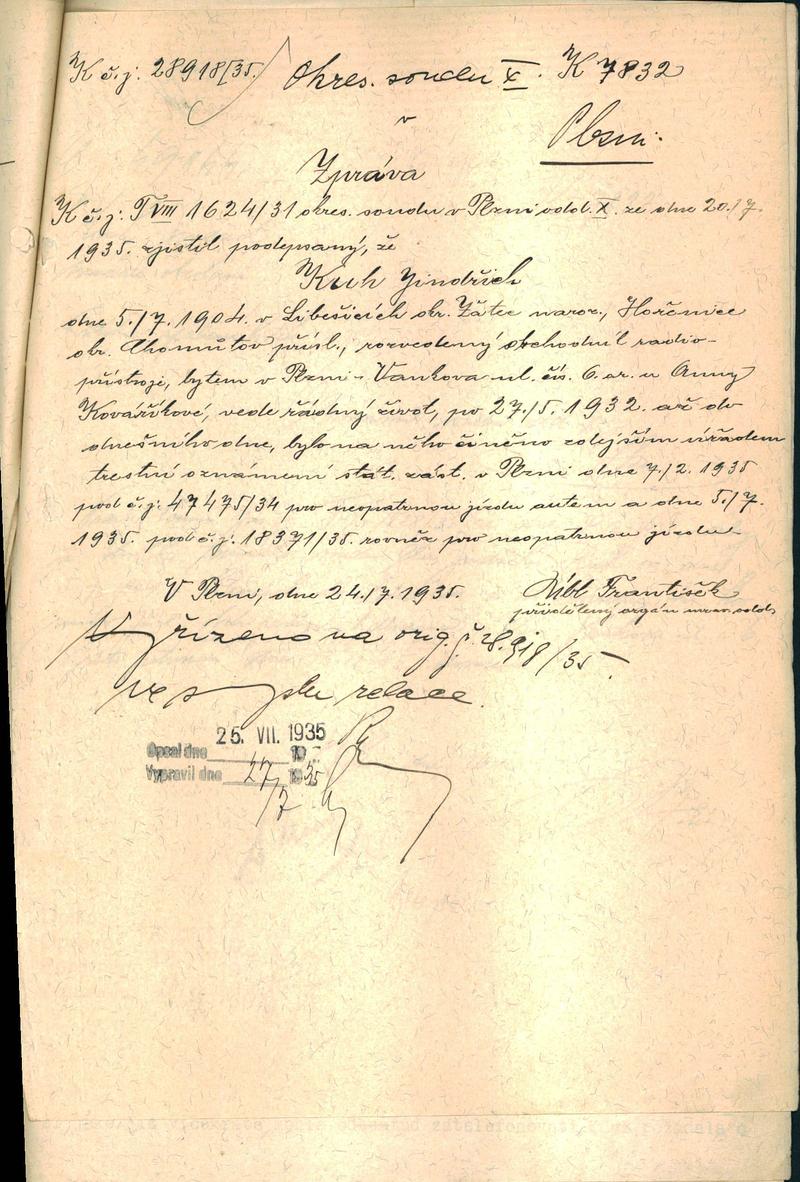 K č. j. 28918/35. Okres. soudu X. K 7832
v
Plzni.
Zpráva
K č. j: T VIII 1624/31 okres. soudu v Plzni odd. X. ze dne 20./7.
1935. zjistil podepsaný, že
Kuh Jindřich
dne 5./7. 1904. v Liběšicích okr. Žatec naroz., Hořenice
okr. Chomutov přísl., rozvedený obchodník radio-
přístroji, bytem v Plzni - Vaňkova ul. čís. 6. ar. u Anny
Kovaříkové, vede řádný život, po 27./5. 1932. až do
dnešního dne, bylo na něho činěno zdejším úřadem
trestní oznámení stát. zást. v Plzni dne 7./2. 1935
pod č. j: 47475/34 pro neopatrnou jízdu autem a dne 5./7.
1935. pod č. j: 18371/35. rovněž pro neopatrnou jízdu.
V Plzni, dne 24./7. 1935. František
přidělený orgán mrav. odd.
Vyřízeno na orig. č. 28.918/35
ve smyslu relace.
25. VII. 1935
Opsal dne 19
Vypravil dne 27/7 1935